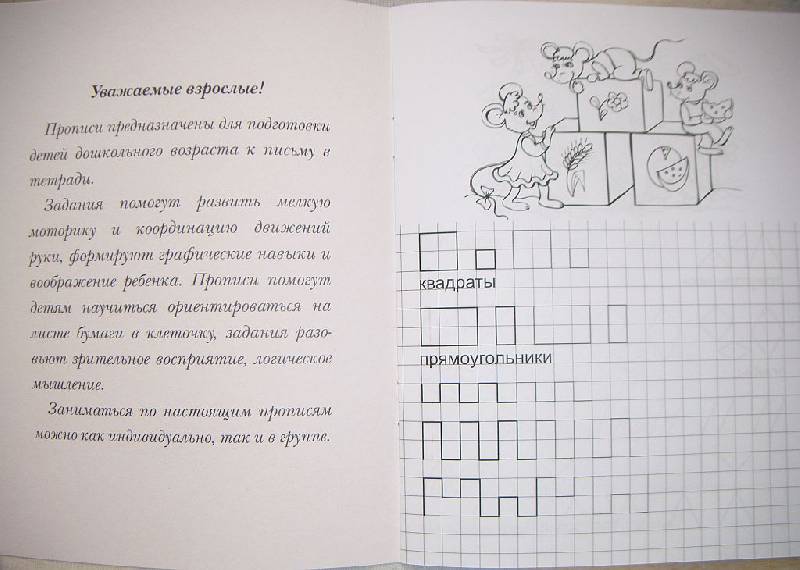 Уважаемые взрослые!
Прописи предназначены для подготовки
детей дошкольного возраста к письму в
тетради.
Задания помогут развить мелкую
моторику и координацию движений
руки, формируют графические навыки и
воображение ребенка. Прописи помогут
детям научиться ориентироваться на
листе бумаги в клеточку, задания разо-
вьют зрительное восприятие, логическое
мышление.
Заниматься по настоящим прописям
можно как индивидуально, так и в группе.
квадраты
прямоугольники